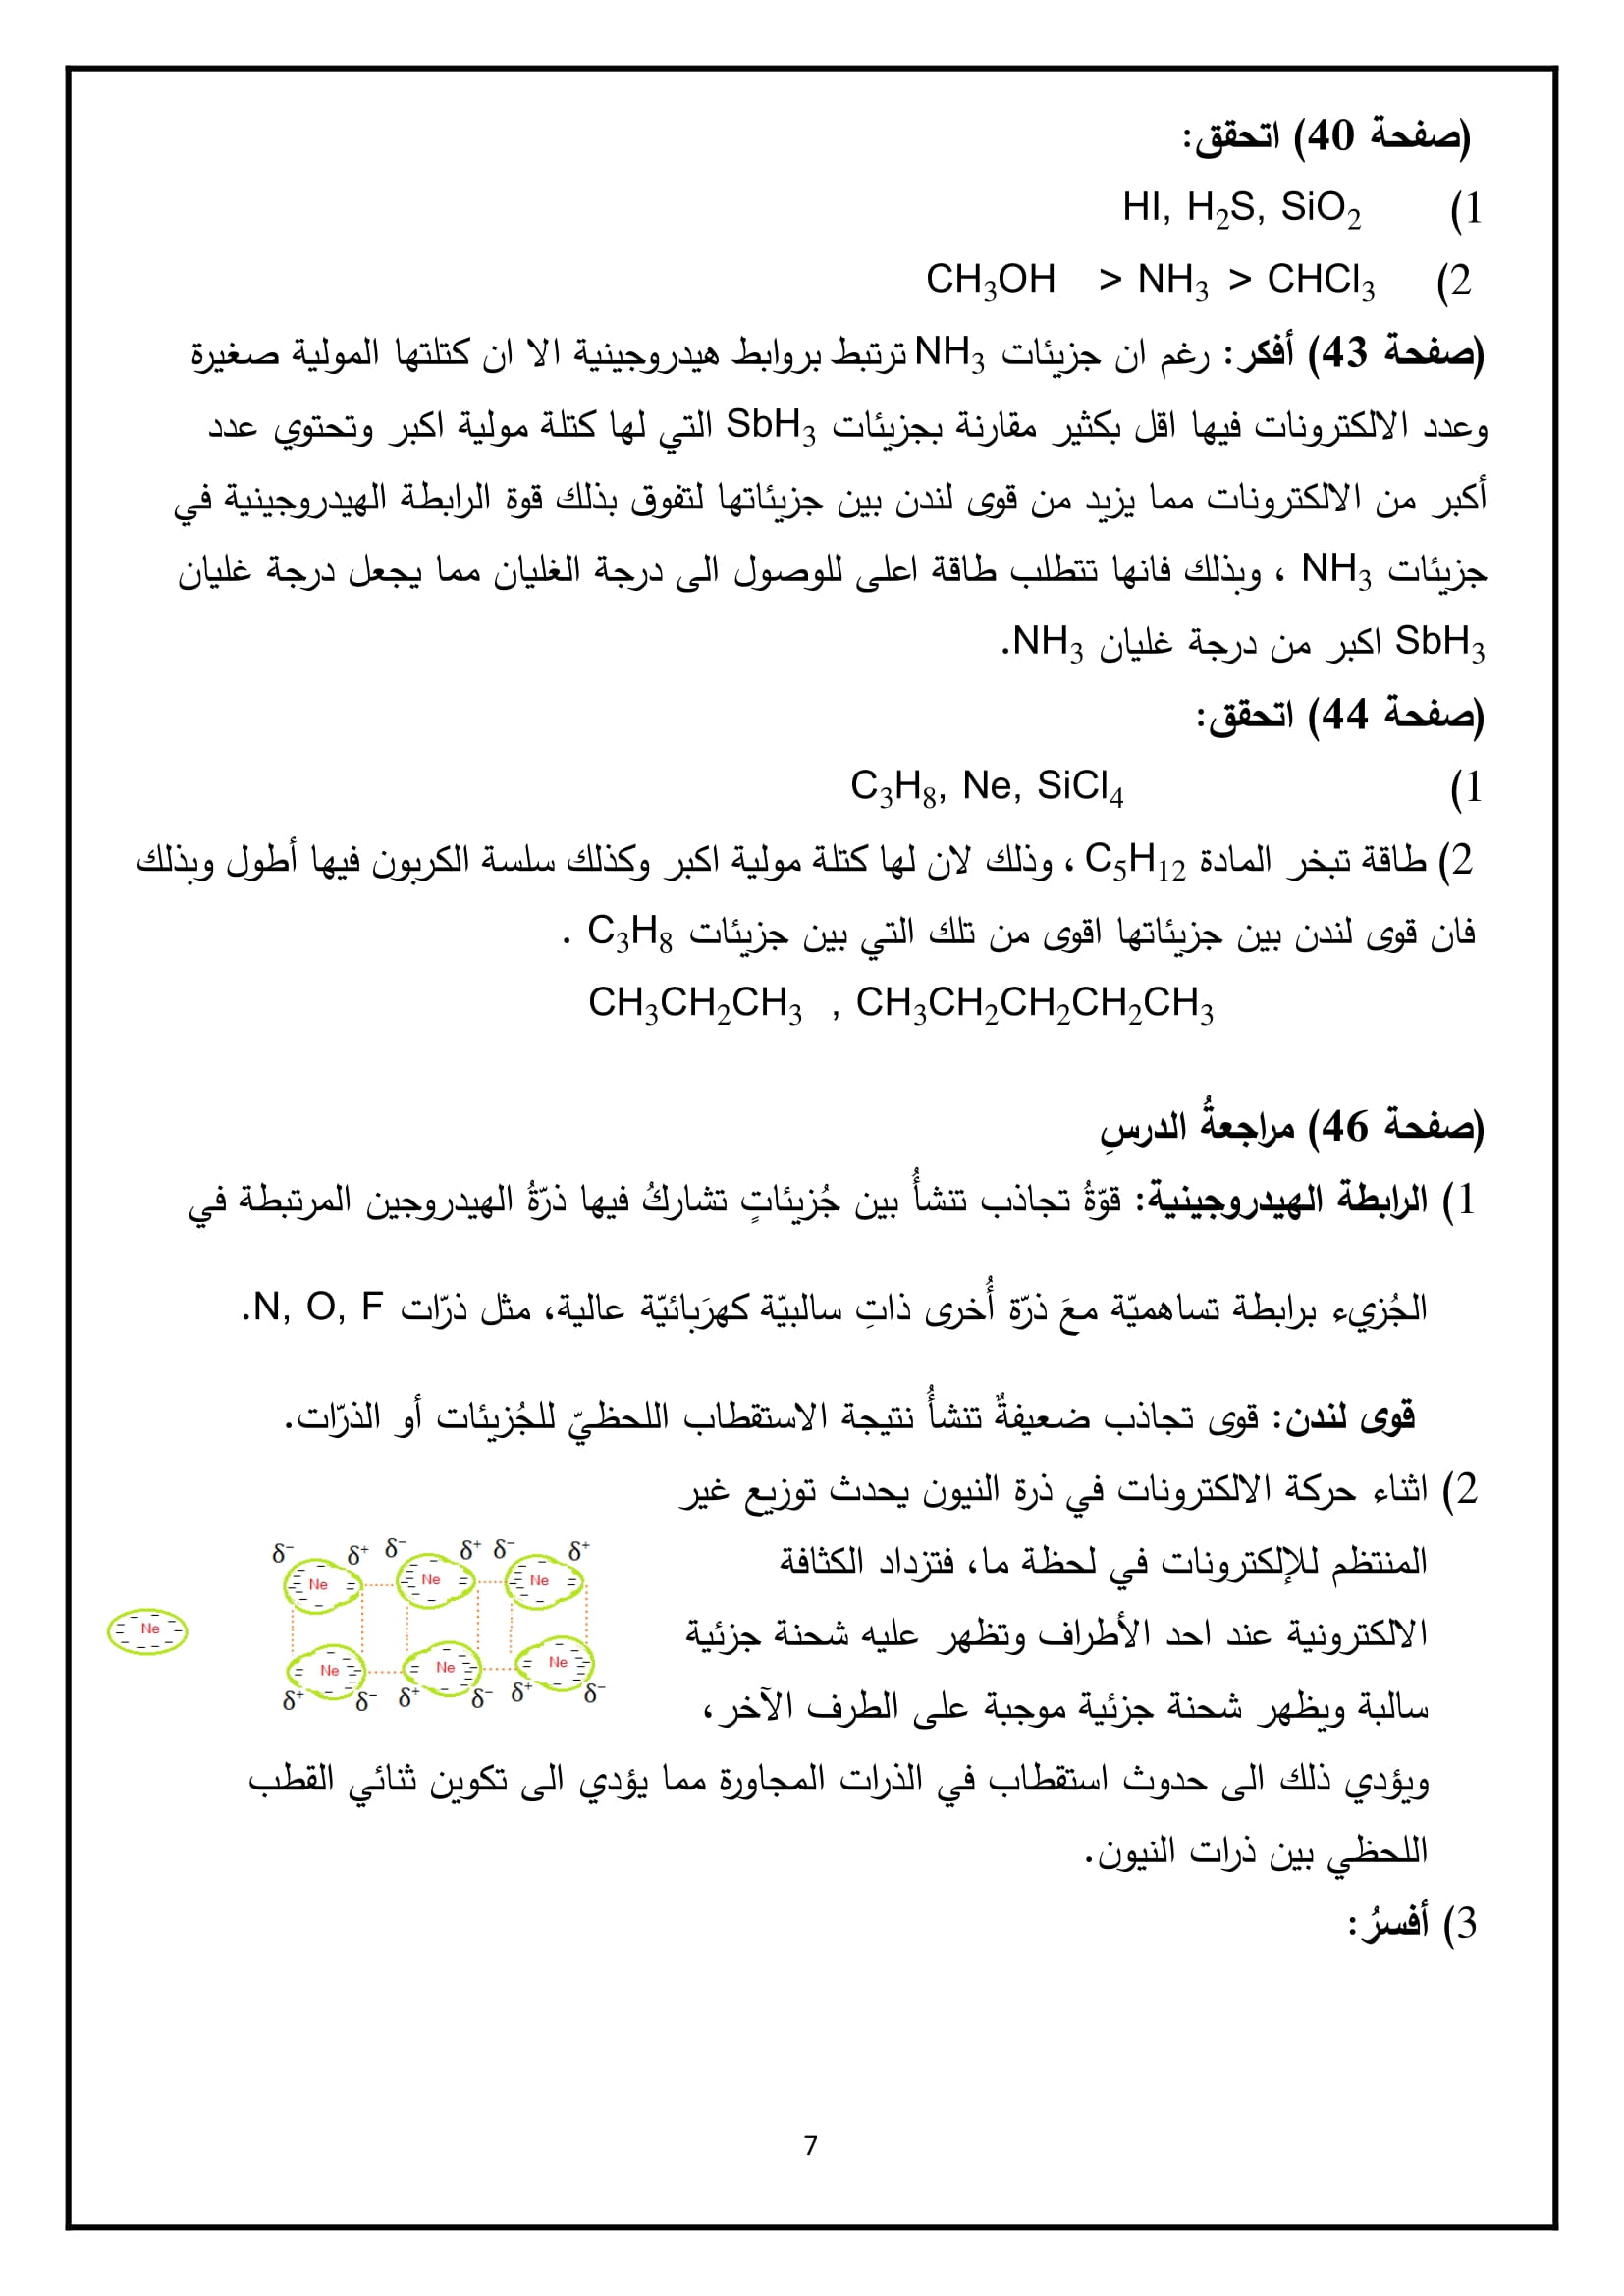 (صفحة 40) اتحقق:
1) HI, H₂S, SiO₂
2) CH₃OH > NH₃ > CHCl₃
(صفحة 43) أفكر: رغم ان جزيئات NH₃ ترتبط بروابط هيدروجينية الا ان كتلتها المولية صغيرة
وعدد الالكترونات فيها اقل بكثير مقارنة بجزيئات SbH₃ التي لها كتلة مولية اكبر وتحتوي عدد
أكبر من الالكترونات مما يزيد من قوى لندن بين جزيئاتها لتفوق بذلك قوة الرابطة الهيدروجينية في
جزيئات NH₃ ، وبذلك فانها تتطلب طاقة اعلى للوصول الى درجة الغليان مما يجعل درجة غليان
SbH₃ اكبر من درجة غليان NH₃.
(صفحة 44) اتحقق:
1) C₃H₈, Ne, SiCl₄
2) طاقة تبخر المادة C₅H₁₂ ، وذلك لان لها كتلة مولية اكبر وكذلك سلسة الكربون فيها أطول وبذلك
فان قوى لندن بين جزيئاتها اقوى من تلك التي بين جزيئات C₃H₈ .
CH₃CH₂CH₃ , CH₃CH₂CH₂CH₂CH₃
(صفحة 46) مراجعةُ الدرسِ
1) الرابطة الهيدروجينية: قوّةُ تجاذب تنشأُ بين جُزيئاتٍ تشاركُ فيها ذرّةُ الهيدروجين المرتبطة في
الجُزيء برابطة تساهميّة معَ ذرّة أُخرى ذاتِ سالبيّة كهرَبائيّة عالية، مثل ذرّات N, O, F.
قوى لندن: قوى تجاذب ضعيفةٌ تنشأُ نتيجة الاستقطاب اللحظيّ للجُزيئات أو الذرّات.
2) اثناء حركة الالكترونات في ذرة النيون يحدث توزيع غير
المنتظم للإلكترونات في لحظة ما، فتزداد الكثافة
الالكترونية عند احد الأطراف وتظهر عليه شحنة جزئية
سالبة ويظهر شحنة جزئية موجبة على الطرف الآخر،
ويؤدي ذلك الى حدوث استقطاب في الذرات المجاورة مما يؤدي الى تكوين ثنائي القطب
اللحظي بين ذرات النيون.
δ⁻ δ⁺ δ⁻ δ⁺ δ⁻ δ⁺
Ne Ne Ne
Ne
Ne Ne Ne
δ⁺ δ⁻ δ⁺ δ⁻ δ⁺ δ⁻
3) أفسرُ:
7